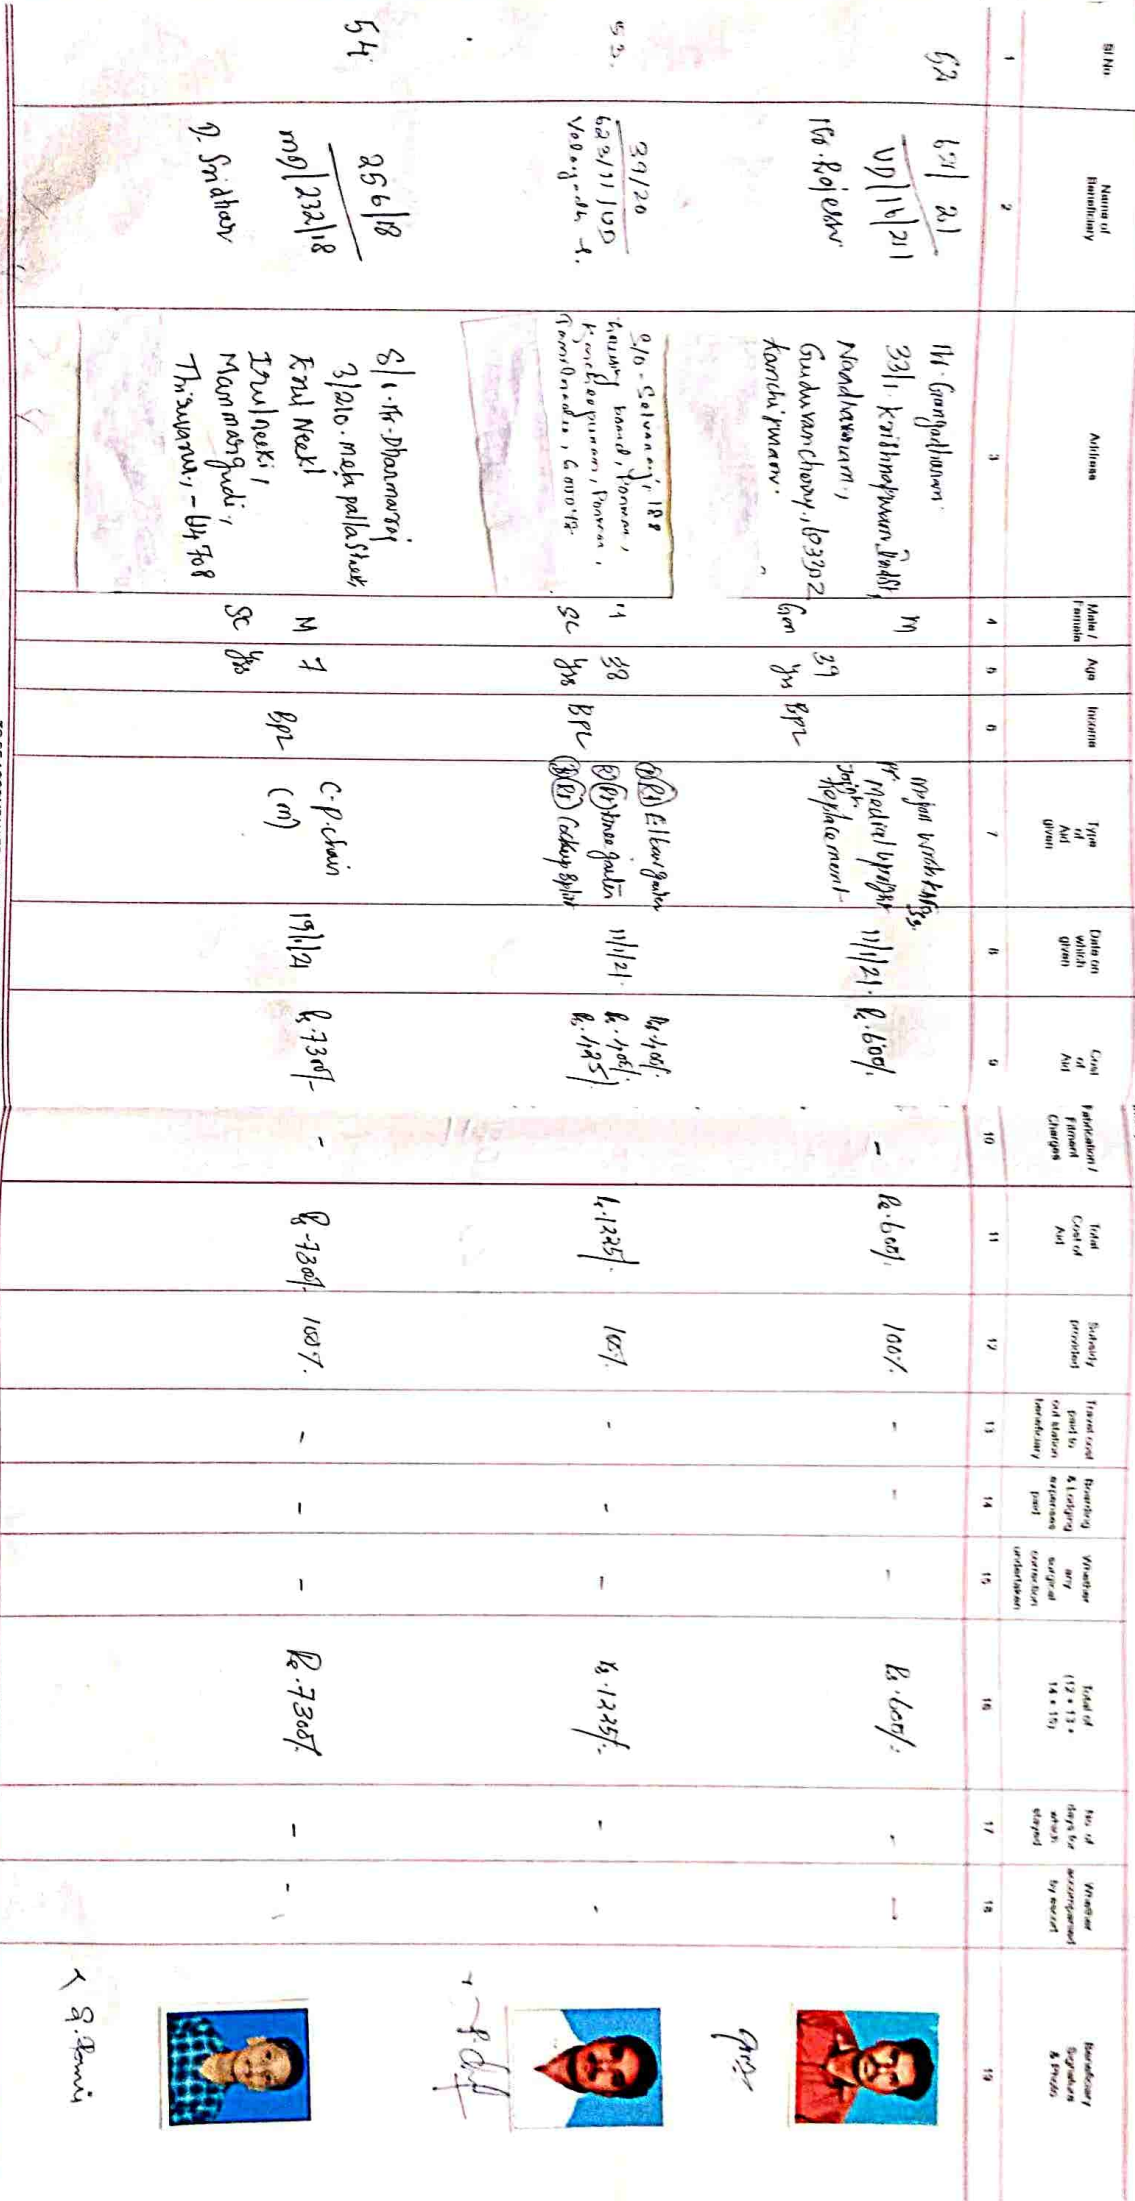 Sl No
Name of
Beneficiary
Address
Male /
Female
Age
Income
Type
of
Aid
given
Date on
which
given
Cost
of
Aid
Fabrication /
Fitment
Charges
Total
Cost of
Aid
Subsidy
provided
Travel cost
paid to
out station
beneficiary
Boarding
& Lodging
expenses
paid
Whether
any
surgical
correction
undertaken
Total of
(12 + 13 +
14 + 15)
No. of
days for
which
stayed
Whether
accompanied
by escort
Beneficiary
Signature
& Photo
1 2 3 4 5 6 7 8 9 10 11 12 13 14 15 16 17 18 19
52
621/21
VD/16/21
33/1. Krishnapuram
Nandhavanam,
Guduvanchery, 603202
Kanchipuram.
M
Gen
39
yrs
BPL
Medial upright
Joint
Replacement
11/1/21.
Rs.600/.
-
Rs.600/.
100%.
-
-
-
Rs.600/-
-
-
53.
39/20
623/11/VD
S/o. Selvaraj, 188
Housing board,
Kancheepuram,
Tamilnadu, 600042
M
SC
38
yrs
BPL
① (Rt) Elbow gaiter
② (Rt) knee gaiter
③ (Rt) Cockup Splint
11/1/21.
Rs.400/.
Rs.400/.
Rs.425/.
Rs.1225/.
100%.
-
-
-
Rs.1225/-
-
-
54.
256/18
MD/232/18
D. Sridhar
S/o. Mr. Dharmaraj
3/210. Mela palla Street,
Erul Neeki
Irulneeki,
Mannargudi,
M
SC
7
yrs
BPL
C.P. chair
(m)
19/1/21
Rs.7300/-
-
Rs.7300/-
100%.
-
-
-
Rs.7300/.
-
-